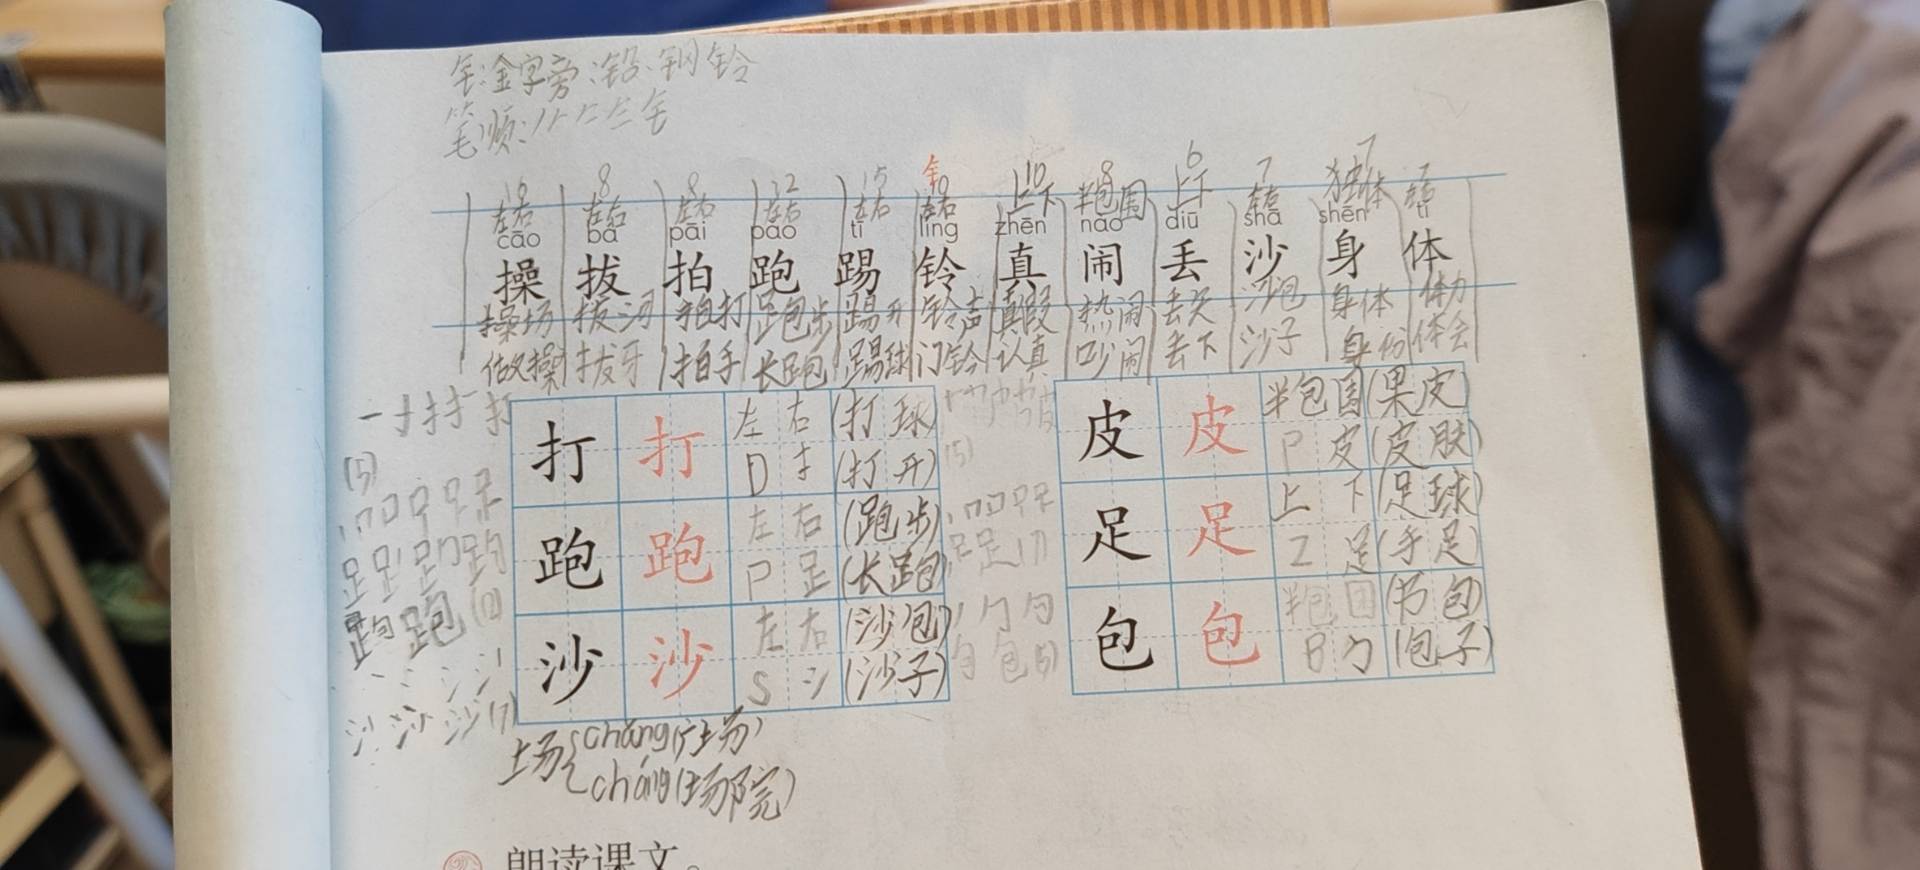 钅:金字旁:铅、钢 铃
笔顺:
16 8 8 12 15 10 10 8 6 7 7 7
左右 左右 左右 左右 左右 钅 左右 上下 半包围 上下 左右 独体 左右
cāo bá pāi pǎo tī líng zhēn nào diū shā shēn tǐ
操 拔 拍 跑 踢 铃 真 闹 丢 沙 身 体
操场 拔河 拍打 跑步 踢开 铃声 真假 热闹 丢失 沙包 身体 体力
做操 拔牙 拍手 长跑 踢球 门铃 认真 吵闹 丢下 沙子 身份 体会
一 十 扌 扌 打
(5)
打 打 左 右 (打 球)
D 扌 (打 开)
跑 跑 左 右 (跑 步)
P 足 (长 跑)
沙 沙 左 右 (沙 包)
S 氵 (沙 子)
(5)
皮 皮 半包围 (果 皮)
P 皮 (皮 肤)
足 足 上 下 (足 球)
Z 足 (手 足)
(7)
包 包 半包围 (书 包)
B 勹 (包 子)
(5)
场 chǎng(广场)
cháng(场院)
朗读课文。